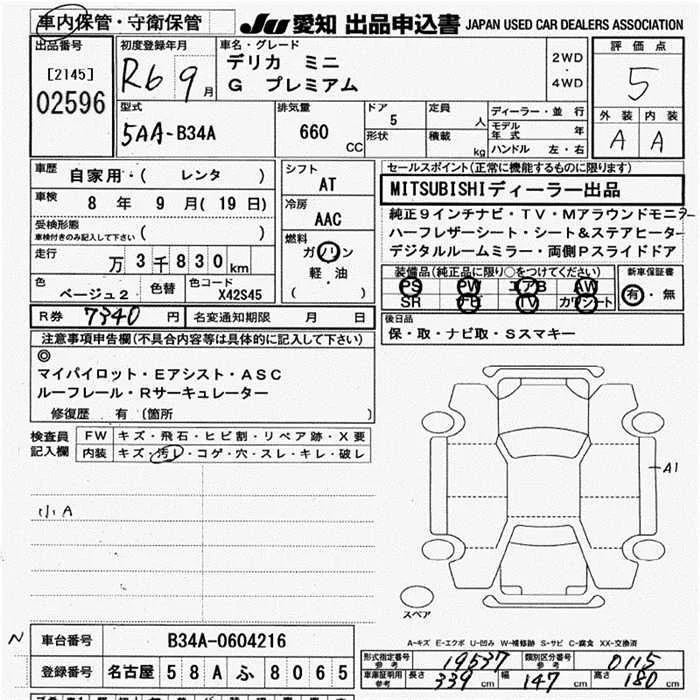 車内保管・守衛保管
JU 愛知 出品申込書 JAPAN USED CAR DEALERS ASSOCIATION
出品番号
[2145]
02596
初度登録年月
R6 9月
車名・グレード
デリカ ミニ
G プレミアム
2WD
・
4WD
評価点
5
外装 内装
A A
型式
5AA-B34A
排気量
660
CC
ドア
5
形状
定員
人
積載
kg
ディーラー・並行
モデル年式 年
ハンドル 左・右
車歴
自家用・( レンタ )
車検
8 年 9 月( 19 日)
受検形態
車検付きのみ記入して下さい ( )
走行
万 3 千 8 3 0 km
色
ベージュ2
色替
色コード
X42S45
シフト
AT
冷房
AAC
燃料
ガソリン
軽・油
( )
セールスポイント(正常に機能するものに限ります)
MITSUBISHIディーラー出品
純正9インチナビ・TV・Mアラウンドモニター
ハーフレザーシート・シート&ステアヒーター
デジタルルームミラー・両側Pスライドドア
装備品(純正品に限り○をつけてください)
PS PW エアB AW
SR TV カワシート
新車保証書
有・無
R券 7340 円
名変通知期限 月 日
後日品
保・取・ナビ取・Sスマキー
注意事項申告欄(不具合内容等は具体的に記入して下さい)
◎
マイパイロット・Eアシスト・ASC
ルーフレール・Rサーキュレーター
修復歴 有 (箇所 )
検査員記入欄
FW キズ・飛石・ヒビ割・リペア跡・X要
内装 キズ・汚レ・コゲ・穴・スレ・キレ・破レ
小A
A1
スペア
A-キズ E-エクボ U-凹み W-補修跡 S-サビ C-腐食 XX-交換済
N
車台番号 B34A-0604216
登録番号 名古屋 5 8 A ふ 8 0 6 5
形式指定番号 参考 19537
類別区分番号 参考 0115
車庫証明用 参考 長さ 339 cm 幅 147 cm 高さ 180 cm